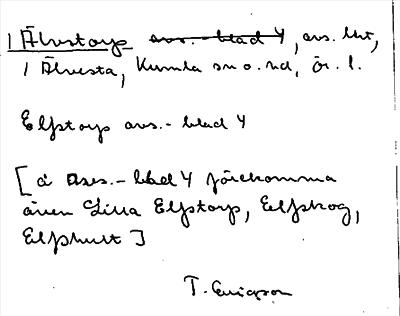 1 Älvstorp avs. - blad 4, avs. lht,
1 Älvesta, Kumla sn o. hd, Ör. l.
Elfstorp avs. - blad 4
[å avs. - blad 4 förekomma
även Lilla Elfstorp, Elfskog,
Elfshult]
T. Ericsson